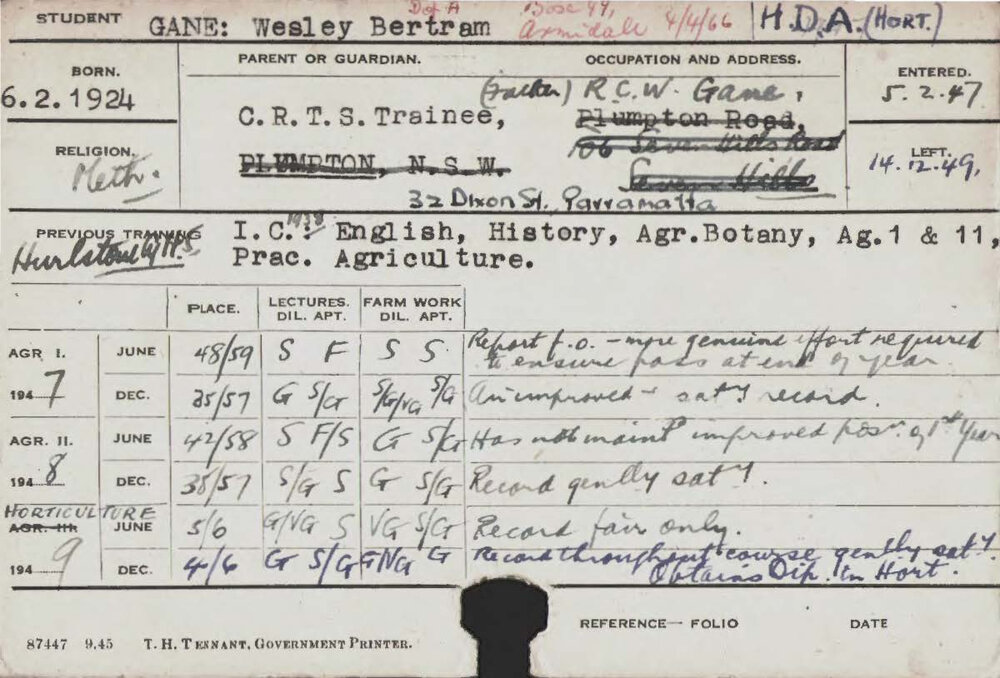 STUDENT GANE: Wesley Bertram Dof A Box 49, Armidale 4/4/66 H.D.A. (HORT.)
BORN. PARENT OR GUARDIAN. OCCUPATION AND ADDRESS. ENTERED.
6.2.1924 C.R.T.S. Trainee, (Father) R.C.W. Gane, 5.2.47
Plumpton Road,
RELIGION. 106 Seven Hills Road LEFT.
Meth. PLUMPTON, N.S.W. Seven Hills 14.12.49.
32 Dixon St. Parramatta
PREVIOUS TRAINING I.C.: 1938 English, History, Agr.Botany, Ag.1 & 11,
Hurlstone Prac. Agriculture.
PLACE. LECTURES. FARM WORK
DIL. APT. DIL. APT.
AGR I. JUNE 48/59 S F S S Report f.o. - more genuine effort required
to ensure pass at end of year
1947 DEC. 35/57 G S/G S/G/VG S/G An improved - sat'y record.
AGR. II. JUNE 42/58 S F/S G S/G Has not maint'd improved pos'n of 1st Year
1948 DEC. 38/57 S/G S G S/G Record gen'lly sat'y.
HORTICULTURE
AGR. III JUNE 5/6 G/VG S VG S/G Record fair only.
1949 DEC. 4/6 G S/G G/VG G Record throughout course gen'lly sat'y
Obtains Dip. in Hort.
REFERENCE— FOLIO DATE
87447 9.45 T. H. TENNANT, GOVERNMENT PRINTER.